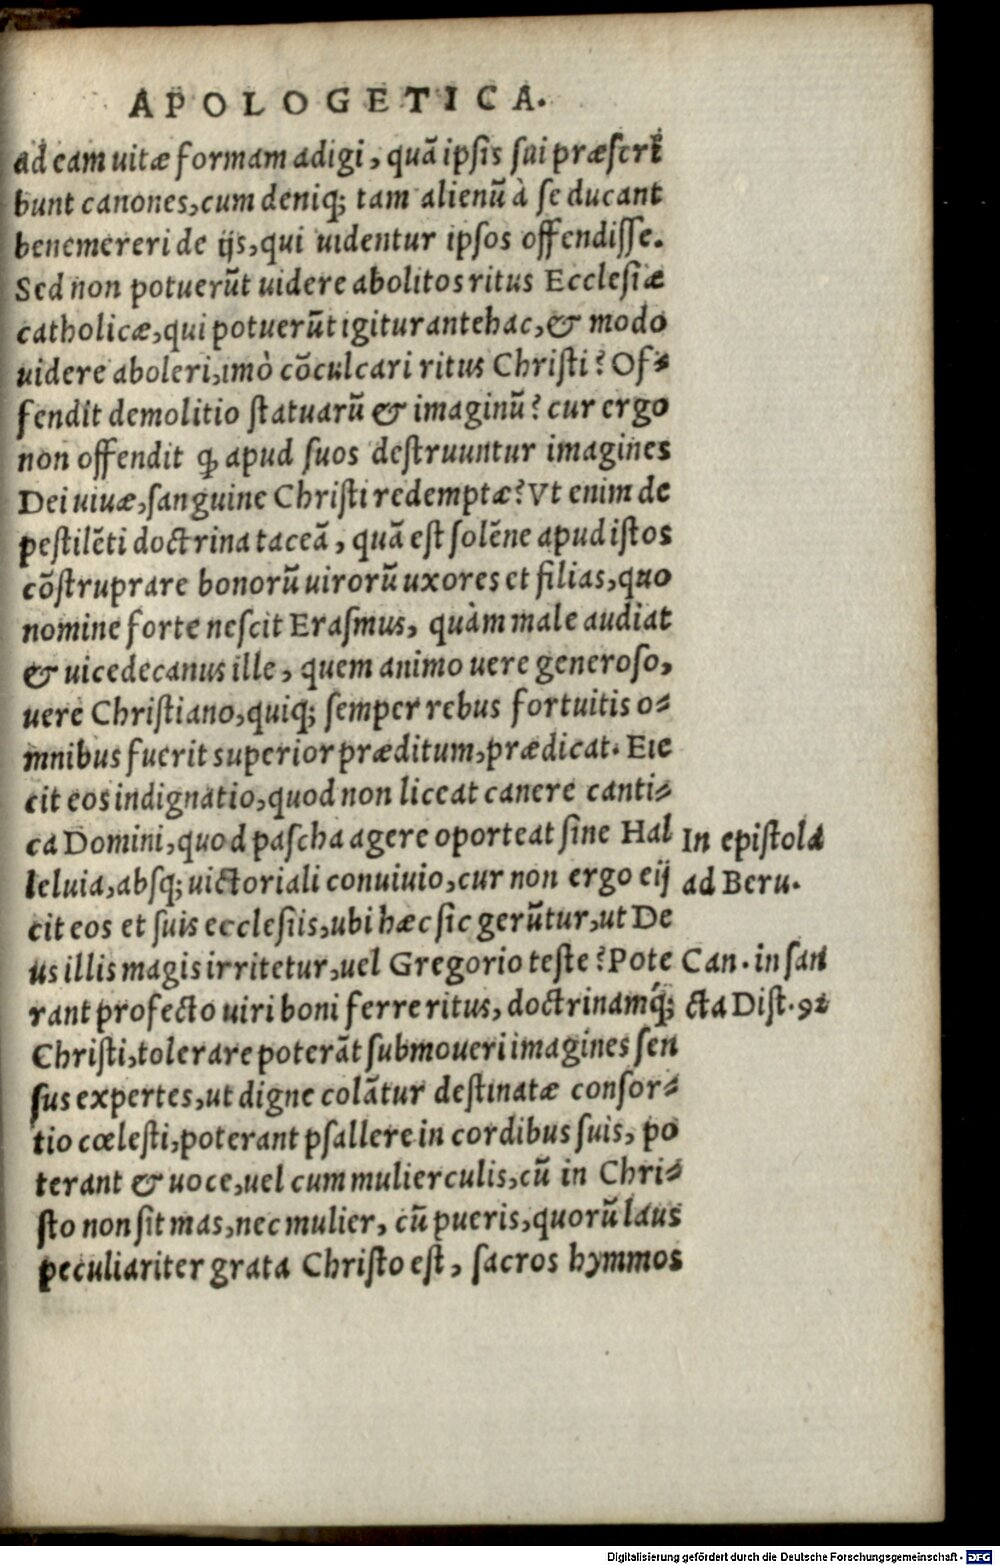 APOLOGETICA.
ad eam uitæ formam adigi, quã ipsis sui præscrĩ
bunt canones, cum deniq; tam alienũ à se ducant
benemereri de ijs, qui uidentur ipsos offendisse.
Sed non potuerũt uidere abolitos ritus Ecclesiæ
catholicæ, qui potuerũt igitur antehac, & modo
uidere aboleri, imò cõculcari ritus Christi? Of⸗
fendit demolitio statuarũ & imaginũ? cur ergo
non offendit ꝙ apud suos destruuntur imagines
Dei uiuæ, sanguine Christi redemptæ? Vt enim de
pestilẽti doctrina taceã, quã est solẽne apud istos
cõstruprare bonorũ uirorũ uxores et filias, quo
nomine forte nescit Erasmus, quàm male audiat
& uicedecanus ille, quem animo uere generoso,
uere Christiano, quiq; semper rebus fortuitis o⸗
mnibus fuerit superior præditum, prædicat. Eie
cit eos indignatio, quod non liceat canere canti⸗
ca Domini, quod pascha agere oporteat sine Hal
In epistola
leluia, absq; uictoriali conuiuio, cur non ergo eij
ad Beru.
cit eos et suis ecclesiis, ubi hæc sic gerũtur, ut De
us illis magis irritetur, uel Gregorio teste? Pote
Can. in san
rant profecto uiri boni ferre ritus, doctrinamq́;
cta Dist. 92
Christi, tolerare poterãt submoueri imagines sen
sus expertes, ut digne colãtur destinatæ consor⸗
tio cœlesti, poterant psallere in cordibus suis, po
terant & uoce, uel cum mulierculis, cũ in Chri⸗
sto non sit mas, nec mulier, cũ pueris, quorũ laus
peculiariter grata Christo est, sacros hymmos
Digitalisierung gefördert durch die Deutsche Forschungsgemeinschaft - DFG